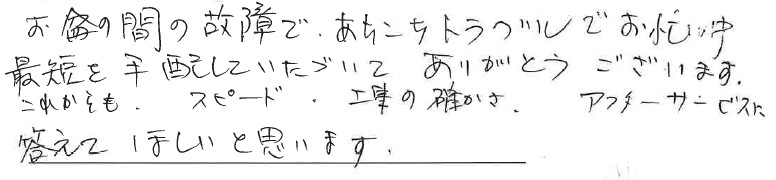 お盆の間の故障で、あちこちトラブルでお忙しい中
最短を手配していただいて ありがとう ございます。
これからも、 スピード、工事の確かさ、 アフターサービスに
答えて ほしいと思います。